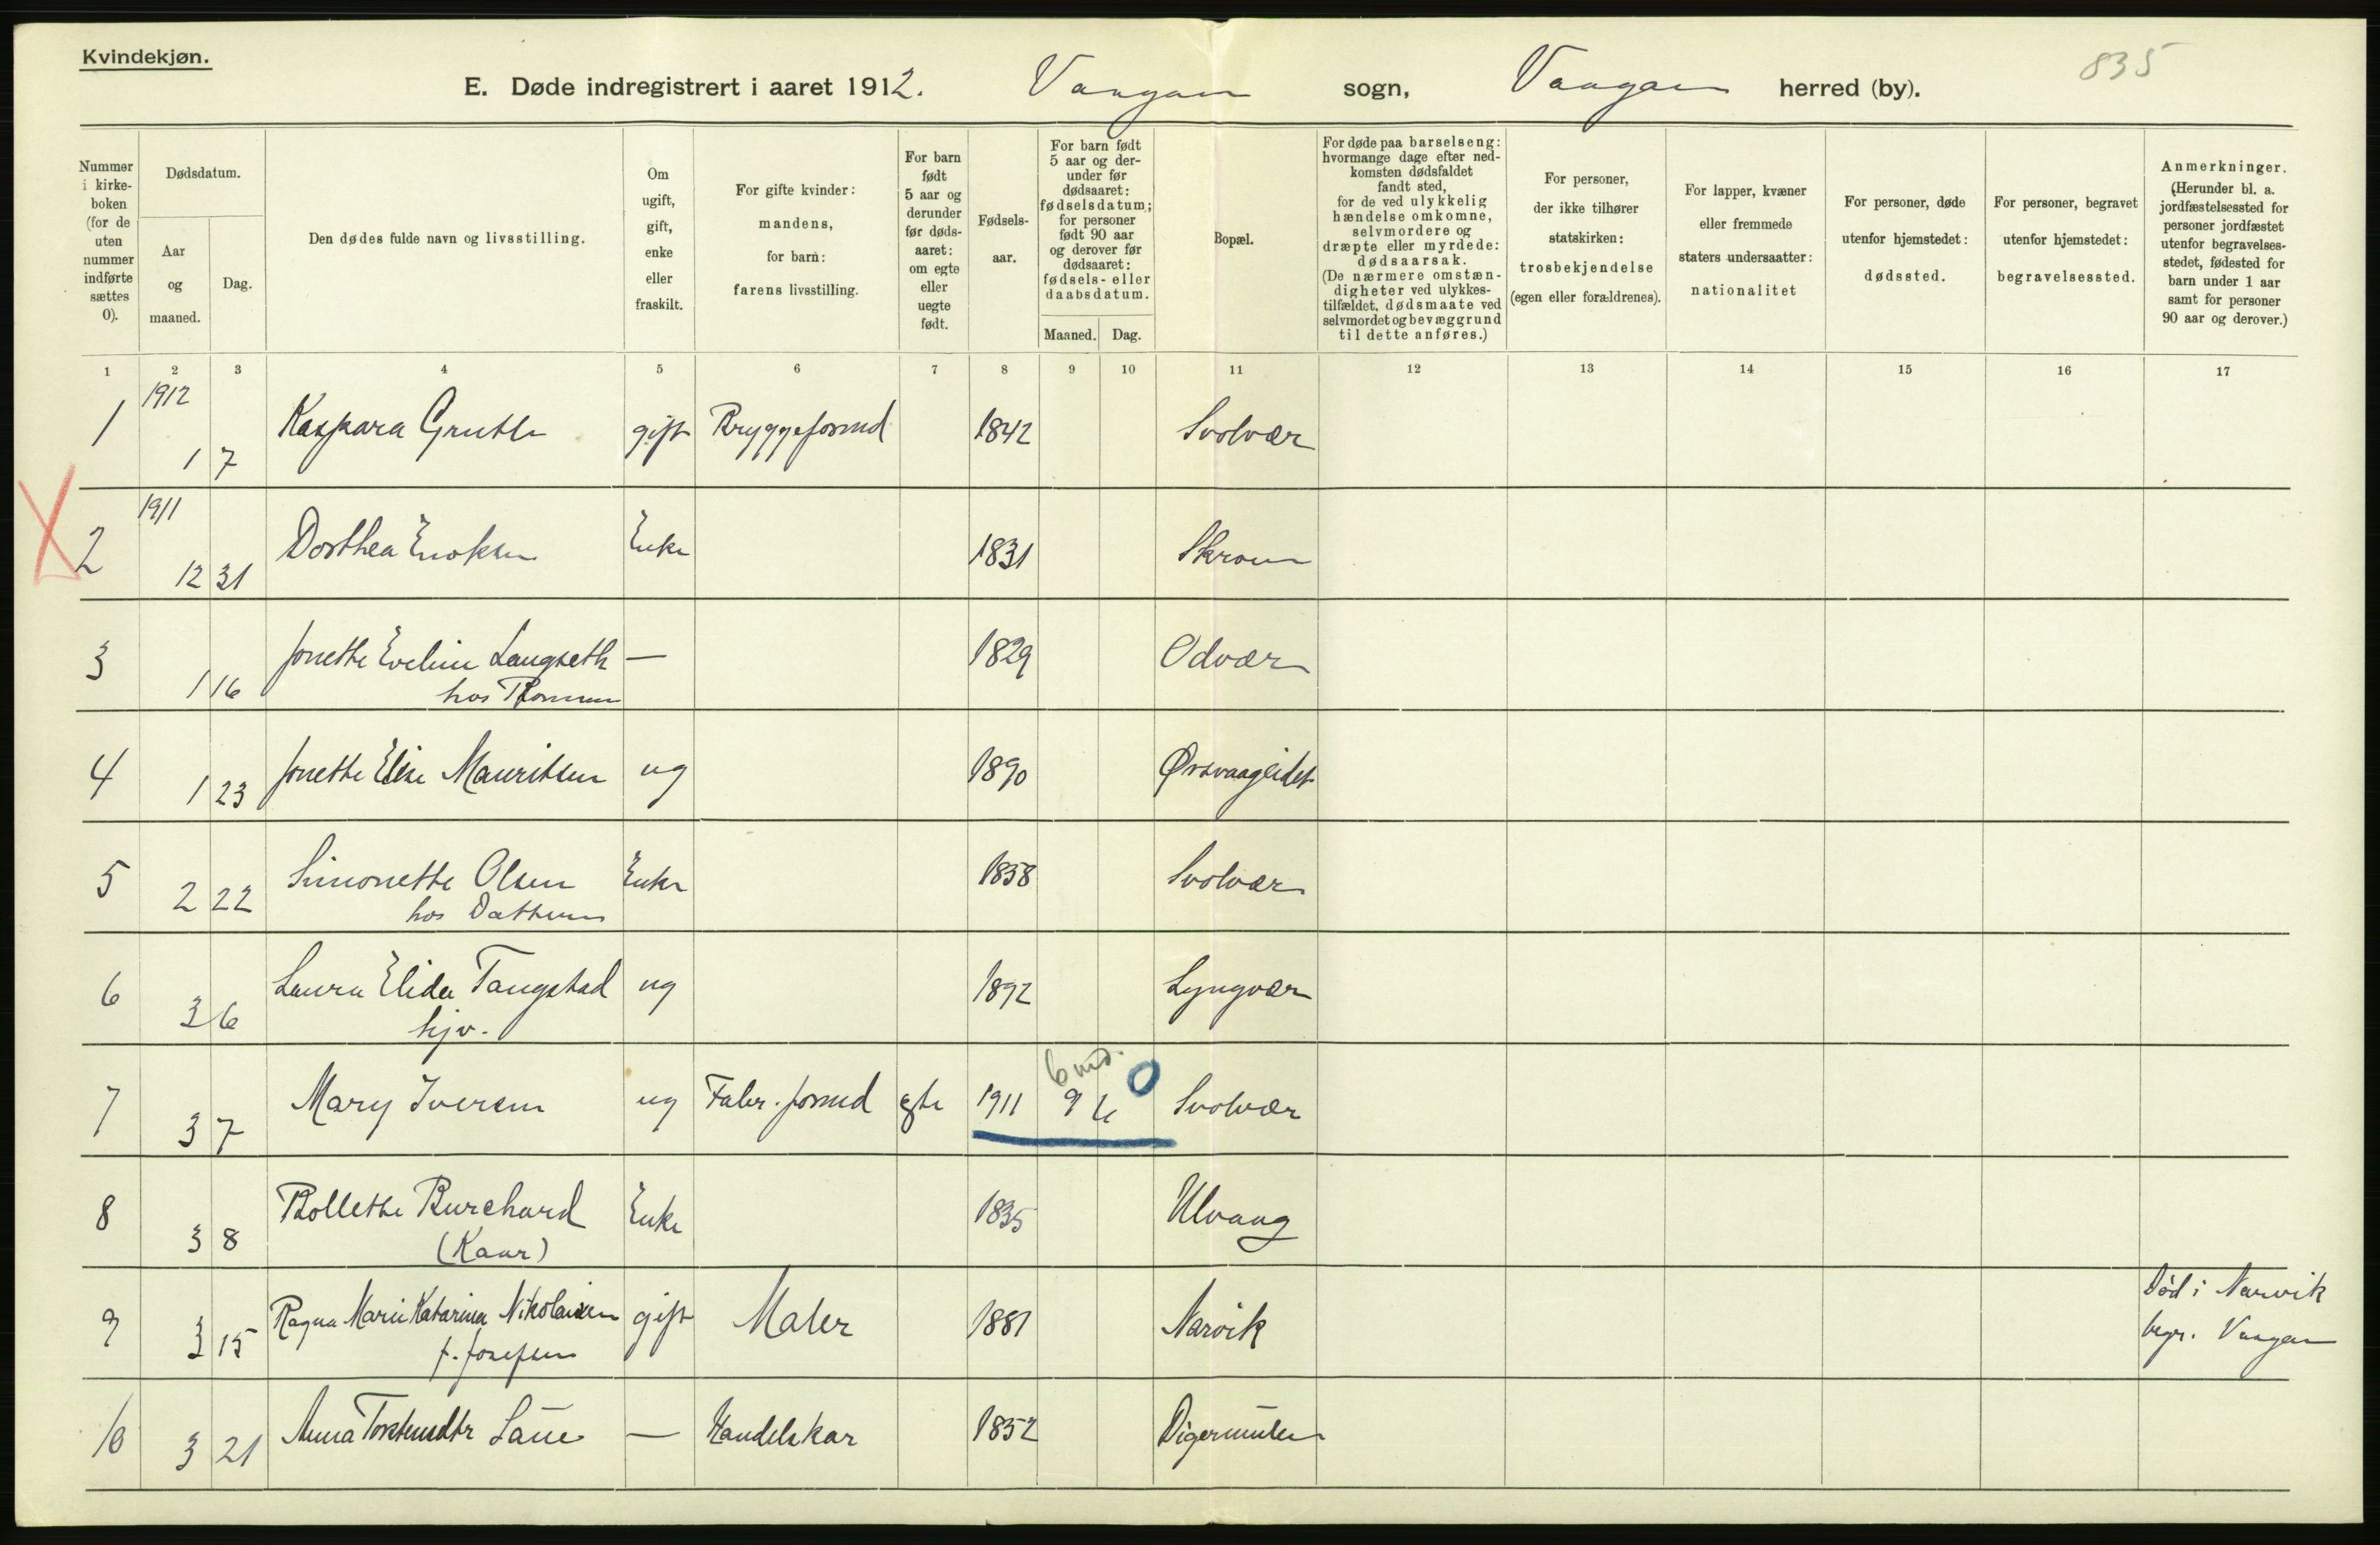 Kvindekjøn.
E. Døde indregistrert i aaret 1912. Vaagan sogn, Vaagan herred (by). 835
Nummer i kirkeboken (for de uten nummer indførte sættes 0).
Dødsdatum.
Aar og maaned.
Dag.
Den dødes fulde navn og livsstilling.
Om ugift, gift, enke eller fraskilt.
For gifte kvinder: mandens, for barn: farens livsstilling.
For barn født 5 aar og derunder før dødsaaret: om egte eller uegte født.
Fødselsaar.
For barn født 5 aar og derunder før dødsaaret: fødselsdatum; for personer født 90 aar og derover før dødsaaret: fødsels- eller daabsdatum.
Maaned. Dag.
Bopæl.
For døde paa barselseng: hvormange dage efter nedkomsten dødsfaldet fandt sted, for de ved ulykkelig hændelse omkomne, selvmordere og dræpte eller myrdede: dødsaarsak. (De nærmere omstændigheter ved ulykkestilfældet, dødsmaate ved selvmordet og bevæggrund til dette anføres.)
For personer, der ikke tilhører statskirken: trosbekjendelse (egen eller forældrenes).
For lapper, kvæner eller fremmede staters undersaatter: nationalitet
For personer, døde utenfor hjemstedet: dødssted.
For personer, begravet utenfor hjemstedet: begravelsessted.
Anmerkninger. (Herunder bl. a. jordfæstelsessted for personer jordfæstet utenfor begravelsesstedet, fødested for barn under 1 aar samt for personer 90 aar og derover.)
1 2 3 4 5 6 7 8 9 10 11 12 13 14 15 16 17
1912
1 1 7 Kaspara Gruttle gift Bryggeformd 1842 Svolvær
1911
2 12 31 Dorthea Enoksen Enke 1831 Skroven
3 1 16 Jonette Eveline Langseth — 1829 Odvær
hos
4 1 23 Jonette Elise Mauritsen ug 1890 Ørsvaageidet
5 2 22 Simonette Olsen Enke 1838 Svolvær
hos Datteren
6 3 6 Laura Elida Tangstad ug 1892 Lyngvær
hjv.
6 md. 0
7 3 7 Mary Iversen ug Fabr. formd egte 1911 9 Svolvær
8 3 8 Bollette Burchard Enke 1835 Ulvaag
(Kaar)
9 3 15 Ragna Marie Katarina Nikolaisen gift Maler 1881 Narvik Død i Narvik
f. Josefsen begr. Vaagan
10 3 21 Anna Torstensdtr Laue — Handelskar 1852 Digermulen